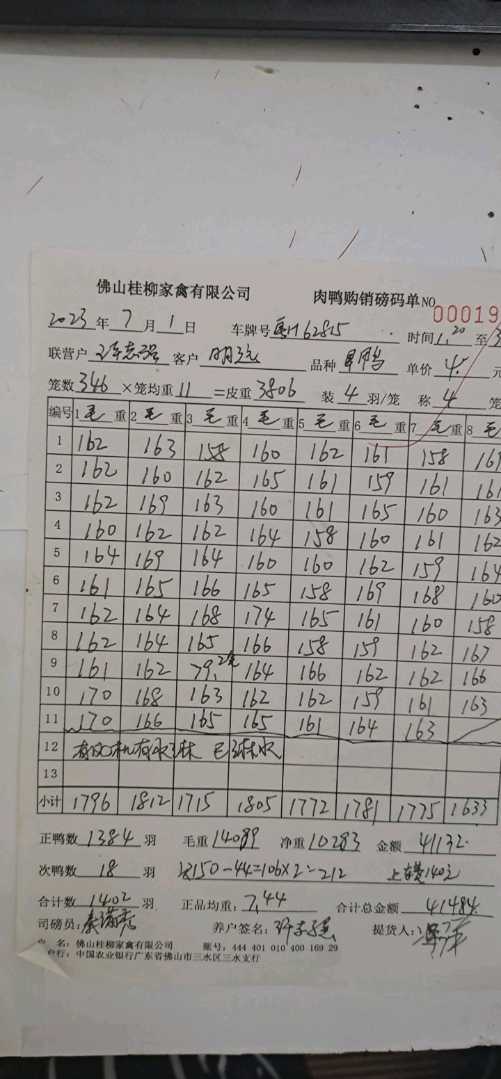 佛山桂柳家禽有限公司 肉鸭购销磅码单 NO 00019
2023 年 7 月 1 日 车牌号 粤H62815 时间 1.20 至 3
联营户 客户 明 品种 单价 4. 元
笼数 346 ×笼均重 11 =皮重 3806 装 4 羽/笼 称 4 笼
编号 1 毛 重 2 毛 重 3 毛 重 4 毛 重 5 毛 重 6 毛 重 7 毛 重 8 毛
1 162 163 158 160 162 161 158 161
2 162 160 162 165 161 159 161 161
3 162 169 163 160 161 165 160 163
4 160 162 162 164 158 160 161 162
5 164 169 164 160 160 162 159 164
6 161 165 166 165 158 169 168 160
7 162 164 168 174 165 161 160 158
8 162 164 165 166 158 159 162 167
9 161 162 79. 164 166 162 162 166
10 170 168 163 162 162 159 161 163
11 170 166 165 165 161 164 163
12
13
小计 1796 1812 1715 1805 1772 1781 1775 1633
正鸭数 1384 羽 毛重 14089 净重 10283 金额 41132
次鸭数 18 羽 150-44=106×2=212 140元
合计数 1402 羽 正品均重: 7.44 合计总金额 41484
司磅员: 养户签名: 提货人:
名: 佛山桂柳家禽有限公司 账号: 444 401 010 400 169 29
行: 中国农业银行广东省佛山市三水区三水支行